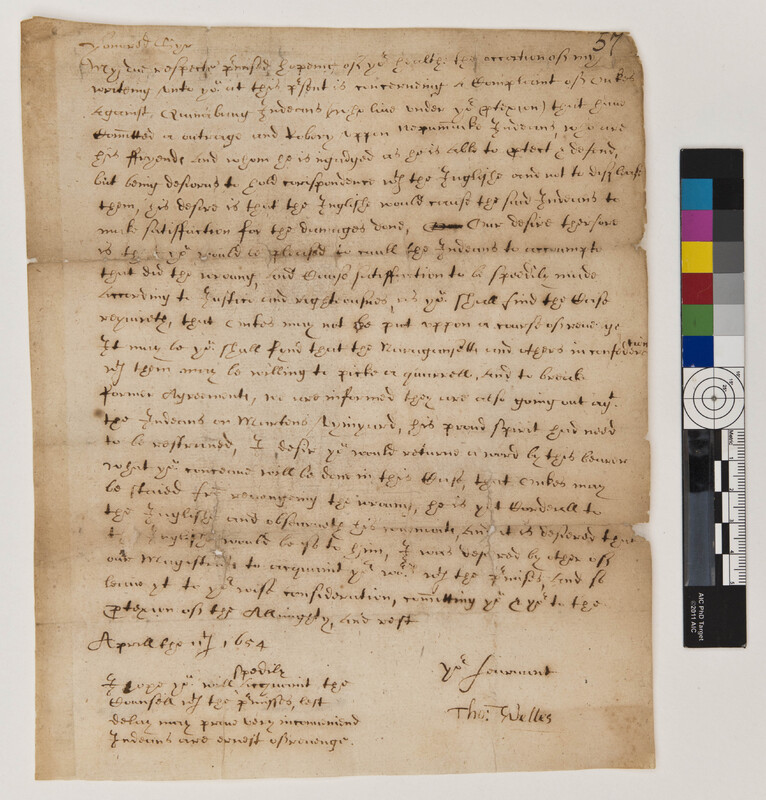 57
Honored Syr
My due respects p'mised hopeing of yo' healthe the occation of my
writing unto yo' at this p'sent is concerning a Complaint of Unkes
Against Quinibaug Indeans (who live under yo' p'texion) that have
Comitted a outrage and Robery uppon Indeans, who are
his ffryends and whom he is ingadged as he is able to p'tect & defend,
but being desirous to hold corispondence wth the Inglishe and not to displease
them, his desire is that the Inglishe would cause the said Indeans to
make satisfaction for the damages done, Our desire therfore
is that yo' would be pleased to caull the Indeans to accoumpte
that did the wroung, and Cause satisfaction to be speedily made
According to Justice and righteousnes, as yo' shall find the Case
requireth, that Unkes may not be put uppon a course of revenge
It may be yo' shall fynd that the Naraganseth and others in confederation
wth them may be willing to picke a quarrell, and to breake
former Agreements, we are informed they are also going out agt.
the Indeans on Martens Vynyard, his proud spirit had need
to be restrained, I desir yo' would returne a word by this bearer
what yo' conceave will be done in this Case, that Unkes may
be staied frō revengeing the wroung, he is yet
the Inglishe and observeth his covenants, and it is desiered that
the Inglishe would be so to him, I was desired by other of
our Magistrats to acquaint yo' wth the p'mises, And so
leave yt to yo' wise consideration, comitting yo' & yo's to the
P'texion of the Allmighty, and rest
Aprill the 11th 1654
yo' Searvant
Tho: Welles
I hope yo' will speedily acquaint the
Counsell wth the p'misses, lest
delay may prove very inconveniend
Indeans are ernest of revenge.
AIC PhD Target
©2011 AIC